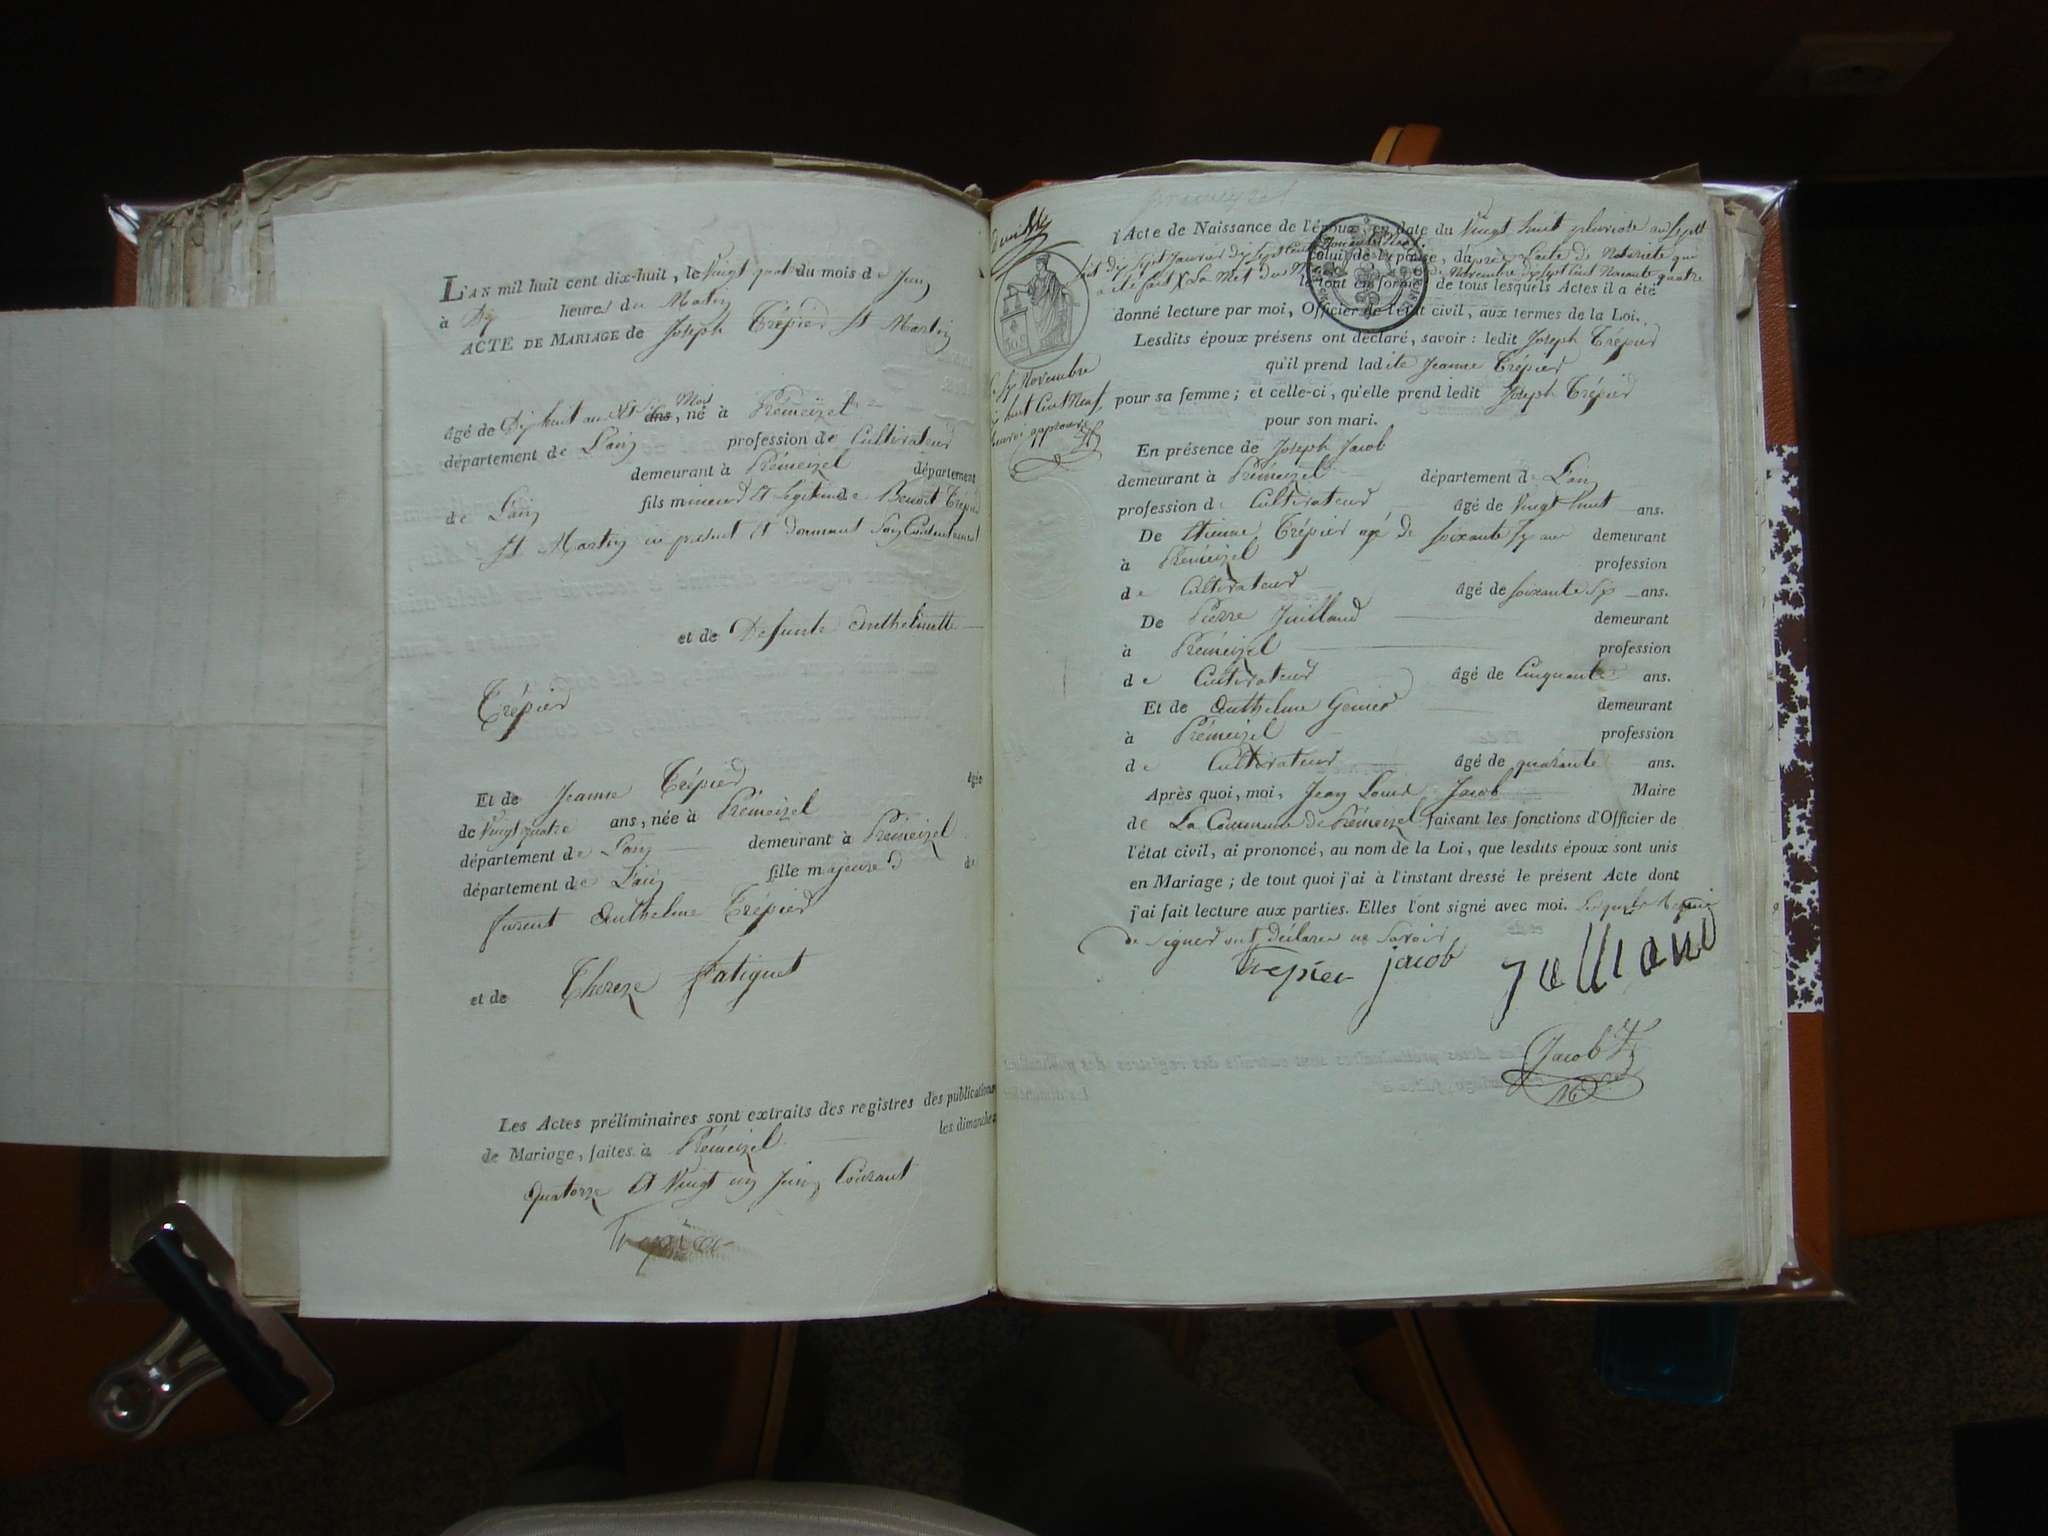 L'AN mil huit cent dix-huit, le Vingt quatre du mois de Juin
à Dix heures du Matin
ACTE DE MARIAGE de Joseph Trépier St Martin
âgé de Dix huit ans et Mois ans, né à Prémeizel
département de L'ain profession de Cultivateur
demeurant à Prémeizel département
de L'ain fils mineur et légitime de Benoit Trépier
St Martin ici présent et donnant Son Consentement
et de Defunte Anthelmette
Trépier
Et de Jeanne Trépier âgée
de Vingt quatre ans, née à Prémeizel
département de L'ain demeurant à Prémeizel
département de L'ain fille majeure d de
furent Anthelme Trépier
et de Thereze Fatiguet
Les Actes préliminaires sont extraits des registres des publications
de Mariage, faites à Prémeizel les dimanches
Quatorze et Vingt un Juin Courant
Trepier
premeyzel
l'Acte de Naissance de l'époux en date du Vingt huit pluviose an Sept
dix Sept Janvier dix Sept Cent
celui de l'épouse, d'après L'acte de Notoriété qui
a été fait Novembre dix Sept Cent Nonante quatre
le tout en forme; de tous lesquels Actes il a été
donné lecture par moi, Officier de l'état civil, aux termes de la Loi.
Lesdits époux présens ont déclaré, savoir: ledit Joseph Trépier
qu'il prend ladite Jeanne Trépier
pour sa femme; et celle-ci, qu'elle prend ledit Joseph Trépier
pour son mari.
Novembre
huit Cent Neuf
approuvé
En présence de Joseph Jacob
demeurant à Prémeizel département de L'ain
profession de Cultivateur âgé de Vingt huit ans.
De Etienne Trépier agé de Soixante Six ans demeurant
à Prémeizel profession
de Cultivateur âgé de Soixante Six ans.
De Pierre Juilland demeurant
à Prémeizel profession
de Cultivateur âgé de Cinquante ans.
Et de Anthelme Genier demeurant
à Prémeizel profession
de Cultivateur âgé de quarante ans.
Après quoi, moi, Jean Louis Jacob Maire
de La Commune de Prémeizel faisant les fonctions d'Officier de
l'état civil, ai prononcé, au nom de la Loi, que lesdits époux sont unis
en Mariage; de tout quoi j'ai à l'instant dressé le présent Acte dont
j'ai fait lecture aux parties. Elles l'ont signé avec moi. Les quels Requis
de Signer ont déclaré ne Savoir
Trepier jacob
Jacob